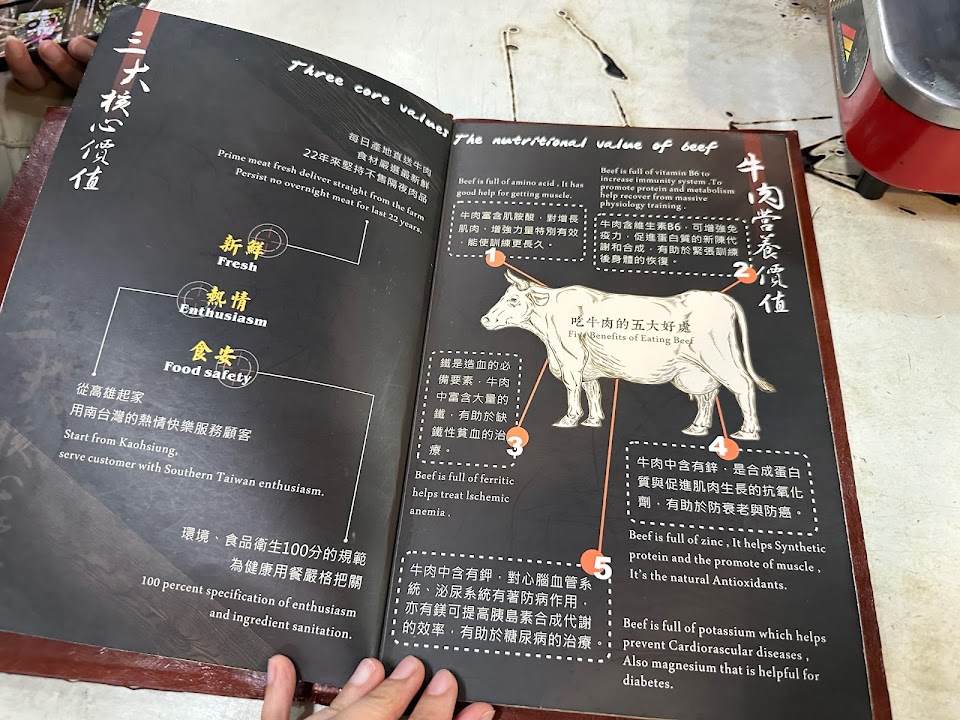 三大核心價值
Three core values
每日產地直送牛肉
食材嚴選最新鮮
22年來堅持不售隔夜肉品
Prime meat fresh deliver straight from the farm
Persist no overnight meat for last 22 years.
新鮮
Fresh
熱情
Enthusiasm
食安
Food safety
從高雄起家
用南台灣的熱情快樂服務顧客
Start from Kaohsiung,
serve customer with Southern Taiwan enthusiasm.
環境、食品衛生100分的規範
為健康用餐嚴格把關
100 percent specification of enthusiasm
and ingredient sanitation.
The nutritional value of beef
牛肉營養價值
Beef is full of amino acid , It has
good help for getting muscle.
牛肉富含肌胺酸，對增長
肌肉、增強力量特別有效
，能使訓練更長久。
1
Beef is full of vitamin B6 to
increase immunity system .To
promote protein and metabolism
help recover from massive
physiology training .
牛肉含維生素B6，可增強免
疫力，促進蛋白質的新陳代
謝和合成，有助於緊張訓練
後身體的恢復。
2
吃牛肉的五大好處
Five Benefits of Eating Beef
鐵是造血的必
備要素，牛肉
中富含大量的
鐵，有助於缺
鐵性貧血的治
療。
3
Beef is full of ferritic
helps treat lschemic
anemia .
4
牛肉中含有鋅，是合成蛋白
質與促進肌肉生長的抗氧化
劑，有助於防衰老與防癌。
Beef is full of zinc , It helps Synthetic
protein and the promote of muscle ,
It's the natural Antioxidants.
5
牛肉中含有鉀，對心腦血管系
統、泌尿系統有著防病作用，
亦有鎂可提高胰島素合成代謝
的效率，有助於糖尿病的治療。
Beef is full of potassium which helps
prevent Cardiorascular diseases ,
Also magnesium that is helpful for
diabetes.